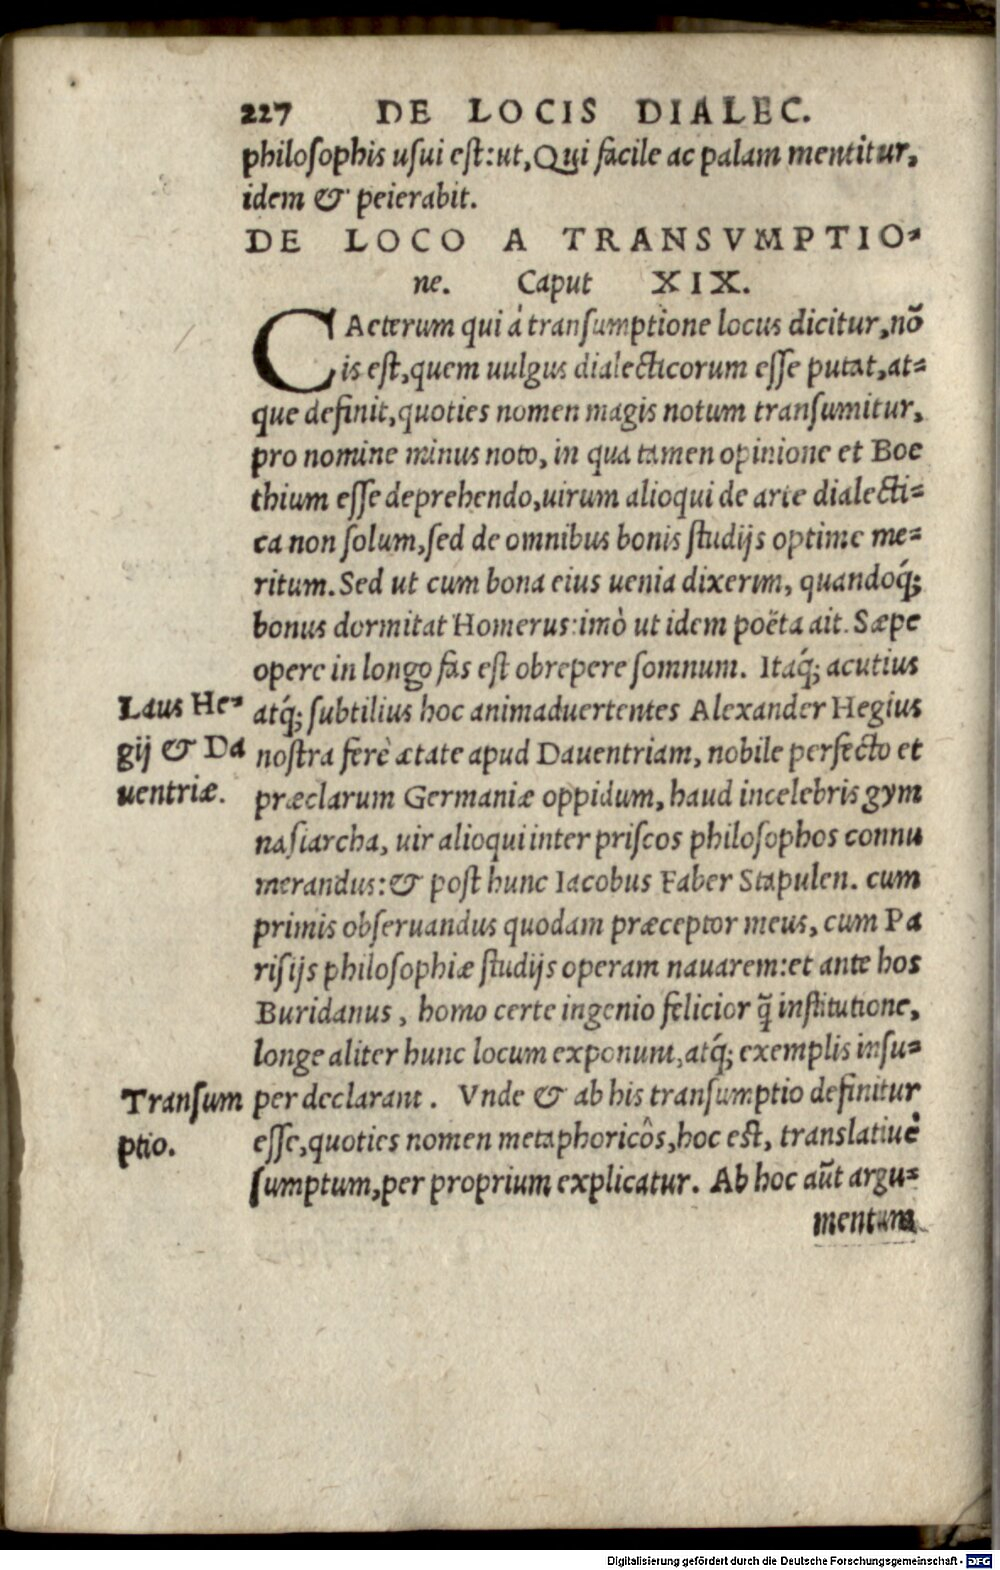 227 DE LOCIS DIALEC.
philosophis usui est: ut, Qui facile ac palam mentitur,
idem & peierabit.
DE LOCO A TRANSVMPTIO-
ne. Caput XIX.
CAeterum qui à transumptione locus dicitur, nō
is est, quem uulgus dialecticorum esse putat, at-
que definit, quoties nomen magis notum transumitur,
pro nomine minus noto, in qua tamen opinione et Boe
thium esse deprehendo, uirum alioqui de arte dialecti-
ca non solum, sed de omnibus bonis studijs optime me-
ritum. Sed ut cum bona eius uenia dixerim, quandoq́;
bonus dormitat Homerus: imò ut idem poëta ait. Sæpe
opere in longo fas est obrepere somnum. Itaq́; acutius
Laus He-
gij & Da
uentriæ.
atq́; subtilius hoc animaduertentes Alexander Hegius
nostra ferè ætate apud Dauentriam, nobile perfecto et
præclarum Germaniæ oppidum, haud incelebris gym
nasiarcha, uir alioqui inter priscos philosophos connu
merandus: & post hunc Iacobus Faber Stapulen. cum
primis obseruandus quodam præceptor meus, cum Pa
risijs philosophiæ studijs operam nauarem: et ante hos
Buridanus, homo certe ingenio felicior q̃ institutione,
longe aliter hunc locum exponunt, atq́; exemplis insu-
Transum
ptio.
per declarant. Vnde & ab his transumptio definitur
esse, quoties nomen metaphoricôs, hoc est, translatiuè
sumptum, per proprium explicatur. Ab hoc aũt argu-
mentum
Digitalisierung gefördert durch die Deutsche Forschungsgemeinschaft - DFG